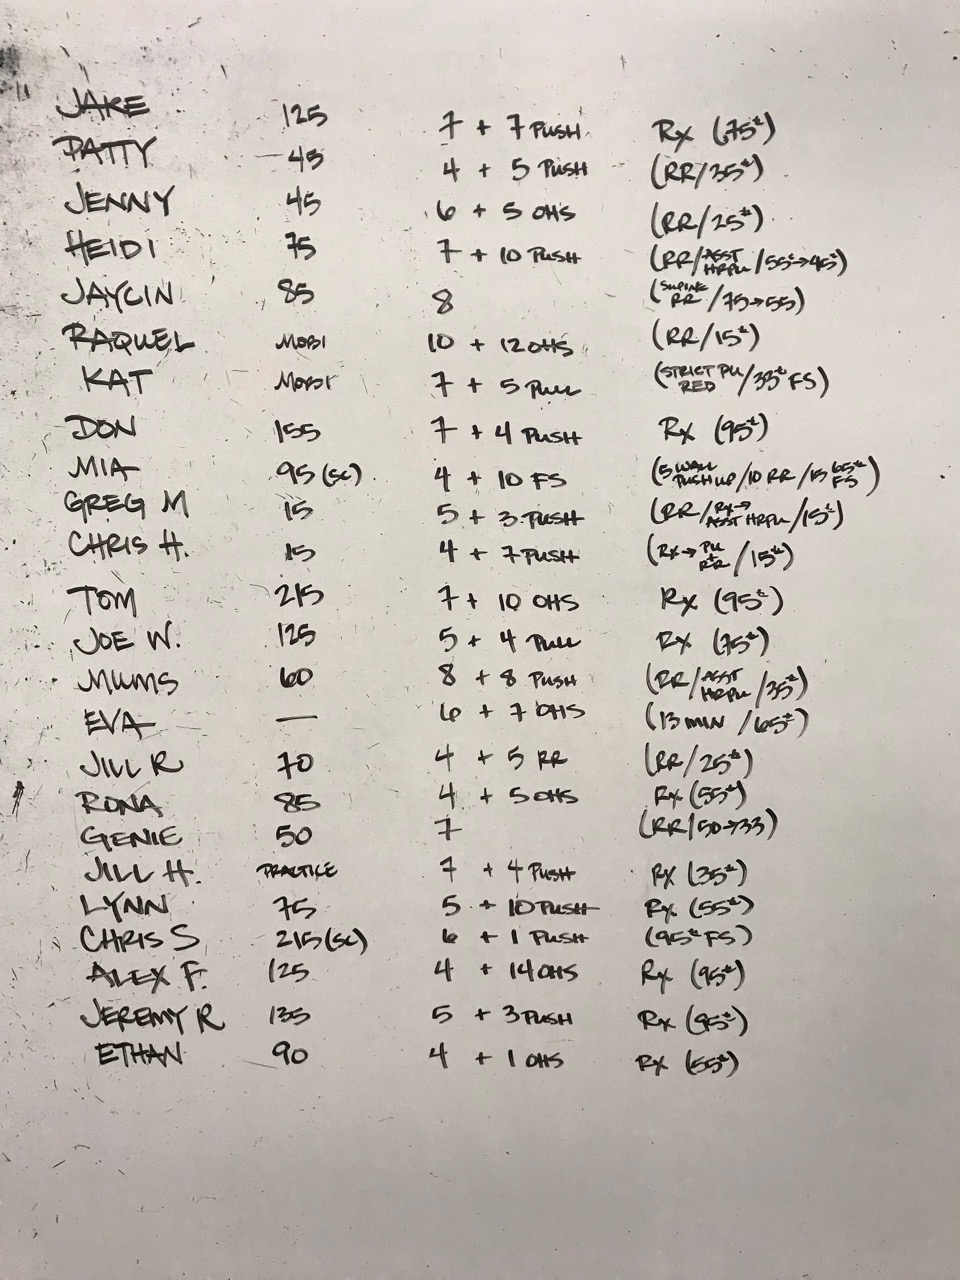 JAKE 125 7 + 7 PUSH Rx (75#)
PATTY 45 4 + 5 PUSH (RR/35#)
JENNY 45 6 + 5 OHS (RR/25#)
HEIDI 75 7 + 10 PUSH (RR/ASST HRPU/55#→45#)
JAYCIN 85 8 (SUPINE RR/75→55)
RAQUEL MOBI 10 + 12 OHS (RR/15#)
KAT MOBI 7 + 5 PULL (STRICT PU RED/33# FS)
DON 155 7 + 4 PUSH Rx (95#)
MIA 95 (SC) 4 + 10 FS (5 WALL PUSH UP/10 RR/15 65# FS)
GREG M 15 5 + 3 PUSH (RR/Rx→ ASST HRPU/15#)
CHRIS H. 15 4 + 7 PUSH (Rx→ PU RR/15#)
TOM 215 7 + 10 OHS Rx (95#)
JOE W. 125 5 + 4 PULL Rx (75#)
MUMS 60 8 + 8 PUSH (RR/ASST HRPU/35#)
EVA — 6 + 7 OHS (13 MIN/65#)
JILL R 70 4 + 5 RR (RR/25#)
RONA 85 4 + 5 OHS Rx (55#)
GENIE 50 7 (RR/50→33)
JILL H. PRACTICE 7 + 4 PUSH Rx (35#)
LYNN 75 5 + 10 PUSH Rx (55#)
CHRIS S 215 (SC) 6 + 1 PUSH (95# FS)
ALEX F. 125 4 + 14 OHS Rx (95#)
JEREMY R 135 5 + 3 PUSH Rx (95#)
ETHAN 90 4 + 1 OHS Rx (55#)